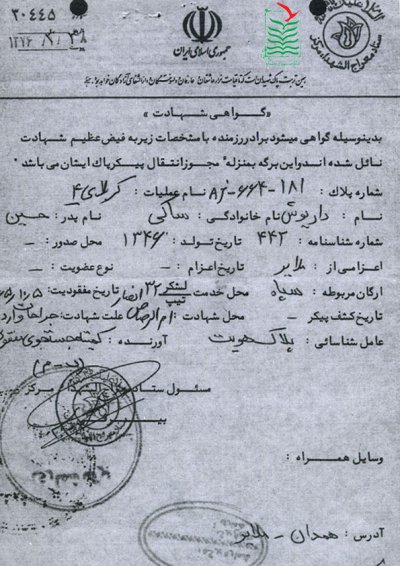 ۲۰۴۴۵
جمهوری اسلامی ایران
ستاد معراج الشهداء مرکز
« گواهی شهادت »
بدینوسیله گواهی میشود برادر رزمنده با مشخصات زیر به فیض عظیم شهادت
نائل شده اند و این برگه بمنزله" مجوز انتقال پیکر پاک ایشان می باشد "
شماره پلاک : ۱۸۱-۶۶۴-AJ نام عملیات : کربلای ۴
نام : داریوش نام خانوادگی : ساکی نام پدر : حسین
شماره شناسنامه : ۴۴۲ تاریخ تولد : ۱۳۴۶ محل صدور : -
اعزامی از : ملایر تاریخ اعزام : - نوع عضویت : -
ارگان مربوطه : سپاه محل خدمت لشکر تیپ ۳۲ انصار تاریخ مفقودیت :
تاریخ کشف پیکر - محل شهادت : ام الرصاص علت شهادت : جراحات وارد
عامل شناسائی : پلاک هویت آورنده : کمیته جستجوی مفقود
مسئول ستاد معراج الشهداء مرکز
وسایل همراه :
آدرس : همدان - ملایر